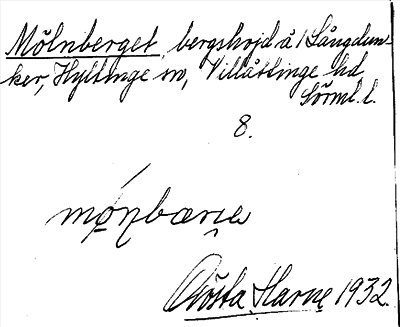 Mölnberget, bergshöjd å 1 Långdun-
ker, Hyltinge sn, Villåttinge hd,
Sörml. l.
8.
Gösta Harne 1932.